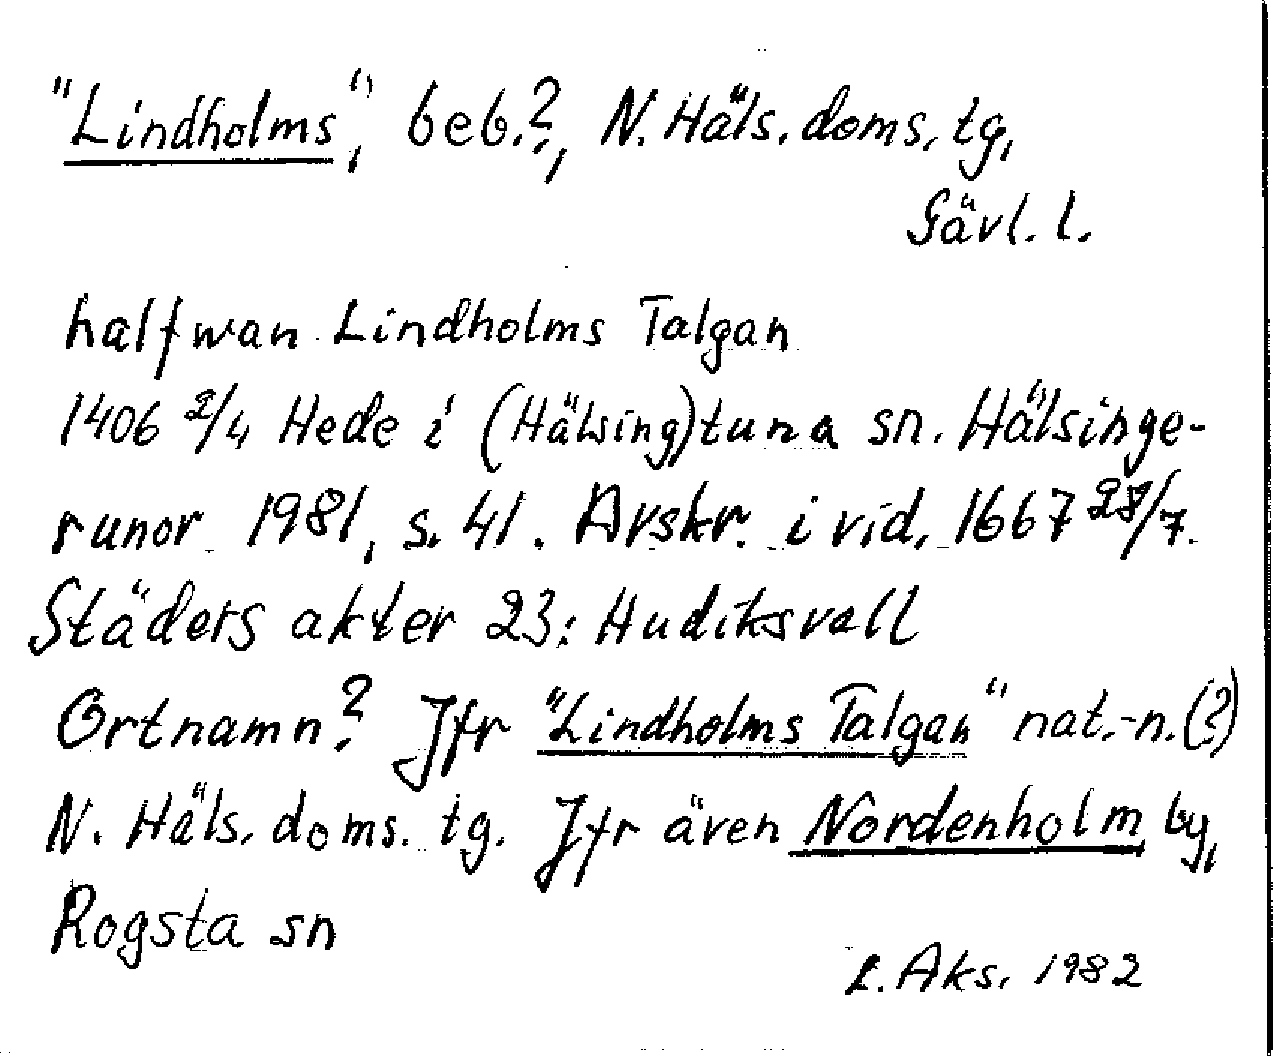 "Lindholms", beb.?, N. Häls. doms. tg,
Gävl. l.
halfwan Lindholms Talgan
1406 2/4 Hede i (Hälsing)tuna sn. Hälsinge-
runor 1981, s. 41. Avskr. i vid. 1667 28/7.
Städers akter 23: Hudiksvall
Ortnamn? Jfr "Lindholms Talgan" nat.-n. (?)
N. Häls. doms. tg. Jfr även Nordenholm by,
Rogsta sn
L. Aks. 1982